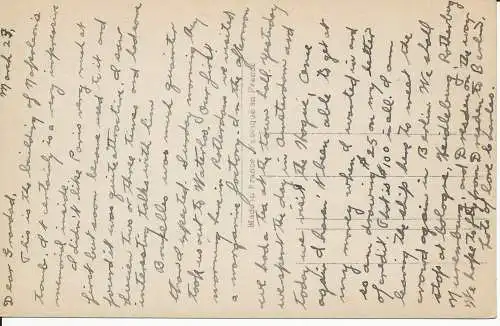 March 27,
Dear Folks,
This is the building of Napoleon's
tomb. It certainly is a very impressive
memorial inside.
I didn't like Paris very much at
first but soon became used to it and
found it was quite attractive. I saw
two or three times and had some
interesting talks with him
Bruxelles was much quainter
than I expected. Sunday morning they
took us out to Waterloo. Our first
morning here in Rotterdam we visited
a margarine factory, and in the afternoon
we had tea at the town hall. Yesterday
we spent the day in Amsterdam and
today we visit the Hague. Once
again I haven't been able to get at
my money when I wanted it and
so am drawing $25 on my letter
of credit. That is $100 in all. I am
leaving the ship here to meet the
crowd again in Berlin. We shall
stop at Cologne, Heidelburg, Rothenburg
Nuremburg and Dresden on the way.
We hope to fly from Dresden to Berlin.
Lots of love to all
Made in France - Fabriqué en France